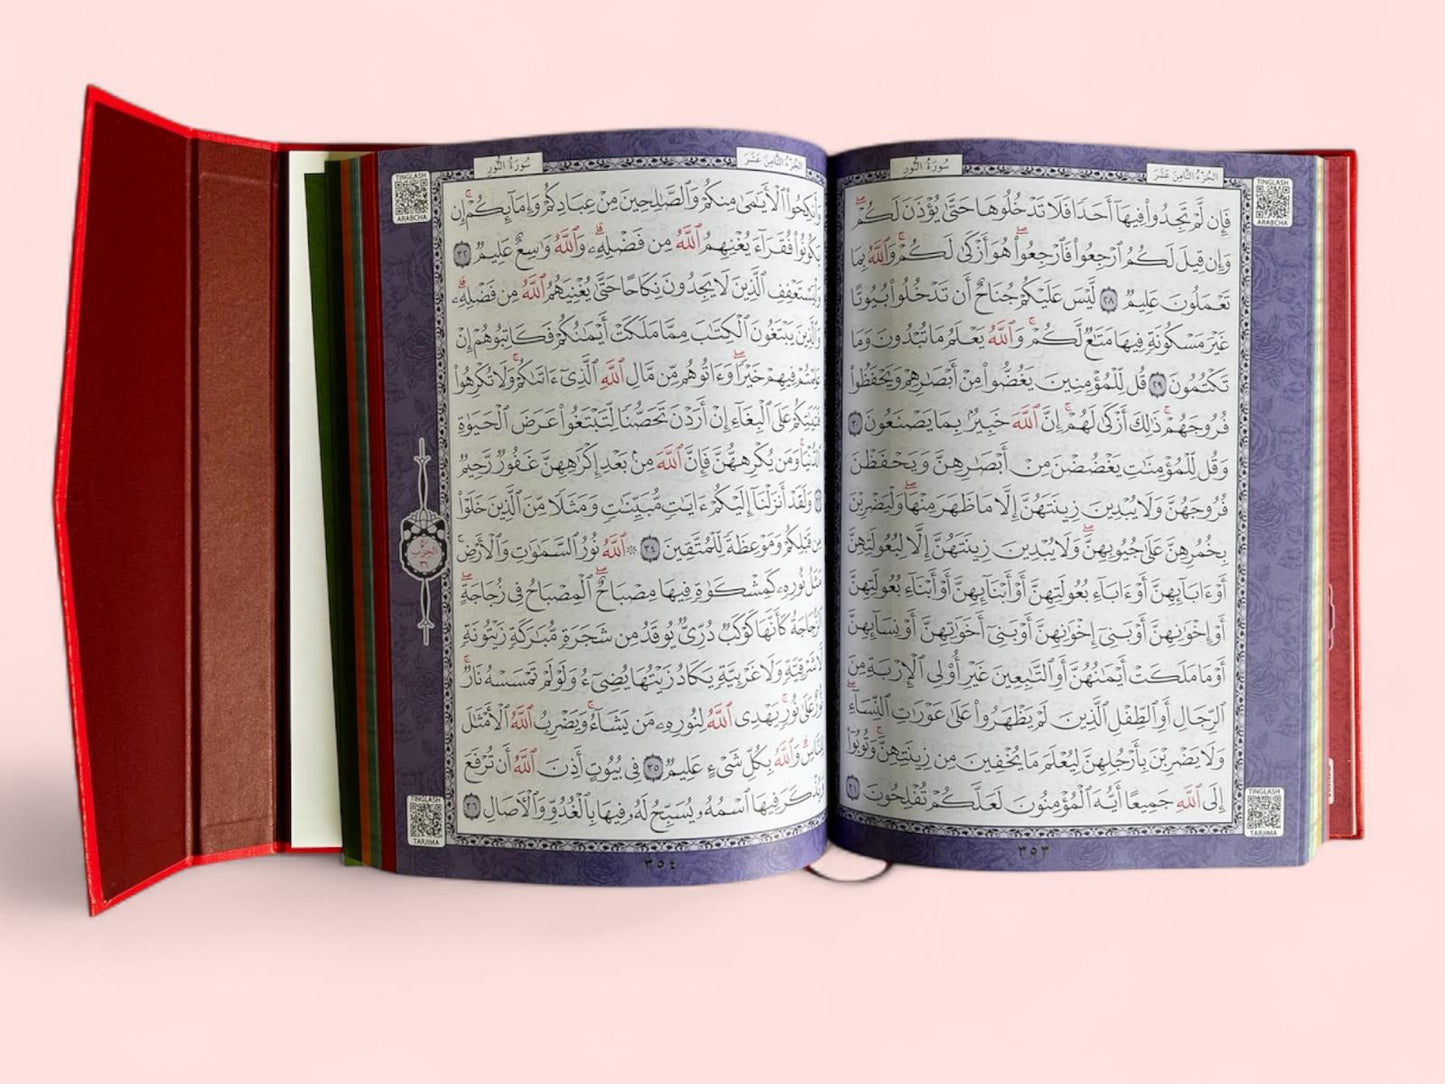 الجُزءُ الثَّامِنَ عَشَرَ
سُورَةُ النُّورِ
TINGLASH
ARABCHA
فَإِن لَّمْ تَجِدُوا۟ فِيهَآ أَحَدًا فَلَا تَدْخُلُوهَا حَتَّىٰ يُؤْذَنَ لَكُمْ ۖ
وَإِن قِيلَ لَكُمُ ٱرْجِعُوا۟ فَٱرْجِعُوا۟ ۖ هُوَ أَزْكَىٰ لَكُمْ ۚ وَٱللَّهُ بِمَا
تَعْمَلُونَ عَلِيمٌ ٢٨ لَّيْسَ عَلَيْكُمْ جُنَاحٌ أَن تَدْخُلُوا۟ بُيُوتًا
غَيْرَ مَسْكُونَةٍ فِيهَا مَتَٰعٌ لَّكُمْ ۚ وَٱللَّهُ يَعْلَمُ مَا تُبْدُونَ وَمَا
تَكْتُمُونَ ٢٩ قُل لِّلْمُؤْمِنِينَ يَغُضُّوا۟ مِنْ أَبْصَٰرِهِمْ وَيَحْفَظُوا۟
فُرُوجَهُمْ ۚ ذَٰلِكَ أَزْكَىٰ لَهُمْ ۗ إِنَّ ٱللَّهَ خَبِيرٌۢ بِمَا يَصْنَعُونَ ٣٠
وَقُل لِّلْمُؤْمِنَٰتِ يَغْضُضْنَ مِنْ أَبْصَٰرِهِنَّ وَيَحْفَظْنَ
فُرُوجَهُنَّ وَلَا يُبْدِينَ زِينَتَهُنَّ إِلَّا مَا ظَهَرَ مِنْهَا ۖ وَلْيَضْرِبْنَ
بِخُمُرِهِنَّ عَلَىٰ جُيُوبِهِنَّ ۖ وَلَا يُبْدِينَ زِينَتَهُنَّ إِلَّا لِبُعُولَتِهِنَّ
أَوْ ءَابَآئِهِنَّ أَوْ ءَابَآءِ بُعُولَتِهِنَّ أَوْ أَبْنَآئِهِنَّ أَوْ أَبْنَآءِ بُعُولَتِهِنَّ
أَوْ إِخْوَٰنِهِنَّ أَوْ بَنِىٓ إِخْوَٰنِهِنَّ أَوْ بَنِىٓ أَخَوَٰتِهِنَّ أَوْ نِسَآئِهِنَّ
أَوْ مَا مَلَكَتْ أَيْمَٰنُهُنَّ أَوِ ٱلتَّٰبِعِينَ غَيْرِ أُو۟لِى ٱلْإِرْبَةِ مِنَ
ٱلرِّجَالِ أَوِ ٱلطِّفْلِ ٱلَّذِينَ لَمْ يَظْهَرُوا۟ عَلَىٰ عَوْرَٰتِ ٱلنِّسَآءِ ۖ
وَلَا يَضْرِبْنَ بِأَرْجُلِهِنَّ لِيُعْلَمَ مَا يُخْفِينَ مِن زِينَتِهِنَّ ۚ وَتُوبُوٓا۟
إِلَى ٱللَّهِ جَمِيعًا أَيُّهَ ٱلْمُؤْمِنُونَ لَعَلَّكُمْ تُفْلِحُونَ ٣١
TINGLASH
TARJIMA
٣٥٣
الجُزءُ الثَّامِنَ عَشَرَ
سُورَةُ النُّورِ
TINGLASH
ARABCHA
وَأَنكِحُوا۟ ٱلْأَيَٰمَىٰ مِنكُمْ وَٱلصَّٰلِحِينَ مِنْ عِبَادِكُمْ وَإِمَآئِكُمْ ۚ إِن
يَكُونُوا۟ فُقَرَآءَ يُغْنِهِمُ ٱللَّهُ مِن فَضْلِهِۦ ۗ وَٱللَّهُ وَٰسِعٌ عَلِيمٌ ٣٢
وَلْيَسْتَعْفِفِ ٱلَّذِينَ لَا يَجِدُونَ نِكَاحًا حَتَّىٰ يُغْنِيَهُمُ ٱللَّهُ مِن فَضْلِهِۦ ۗ
وَٱلَّذِينَ يَبْتَغُونَ ٱلْكِتَٰبَ مِمَّا مَلَكَتْ أَيْمَٰنُكُمْ فَكَاتِبُوهُمْ إِنْ
عَلِمْتُمْ فِيهِمْ خَيْرًا ۖ وَءَاتُوهُم مِّن مَّالِ ٱللَّهِ ٱلَّذِىٓ ءَاتَىٰكُمْ ۚ وَلَا تُكْرِهُوا۟
فَتَيَٰتِكُمْ عَلَى ٱلْبِغَآءِ إِنْ أَرَدْنَ تَحَصُّنًا لِّتَبْتَغُوا۟ عَرَضَ ٱلْحَيَوٰةِ
ٱلدُّنْيَا ۚ وَمَن يُكْرِههُّنَّ فَإِنَّ ٱللَّهَ مِنۢ بَعْدِ إِكْرَٰهِهِنَّ غَفُورٌ رَّحِيمٌ
٣٣ وَلَقَدْ أَنزَلْنَآ إِلَيْكُمْ ءَايَٰتٍ مُّبَيِّنَٰتٍ وَمَثَلًا مِّنَ ٱلَّذِينَ خَلَوْا۟
مِن قَبْلِكُمْ وَمَوْعِظَةً لِّلْمُتَّقِينَ ٣٤ ۞ ٱللَّهُ نُورُ ٱلسَّمَٰوَٰتِ وَٱلْأَرْضِ ۚ
مَثَلُ نُورِهِۦ كَمِشْكَوٰةٍ فِيهَا مِصْبَاحٌ ۖ ٱلْمِصْبَاحُ فِى زُجَاجَةٍ ۖ
ٱلزُّجَاجَةُ كَأَنَّهَا كَوْكَبٌ دُرِّىٌّ يُوقَدُ مِن شَجَرَةٍ مُّبَٰرَكَةٍ زَيْتُونَةٍ
لَّا شَرْقِيَّةٍ وَلَا غَرْبِيَّةٍ يَكَادُ زَيْتُهَا يُضِىٓءُ وَلَوْ لَمْ تَمْسَسْهُ نَارٌ ۚ
نُّورٌ عَلَىٰ نُورٍ ۗ يَهْدِى ٱللَّهُ لِنُورِهِۦ مَن يَشَآءُ ۚ وَيَضْرِبُ ٱللَّهُ ٱلْأَمْثَٰلَ
لِلنَّاسِ ۗ وَٱللَّهُ بِكُلِّ شَىْءٍ عَلِيمٌ ٣٥ فِى بُيُوتٍ أَذِنَ ٱللَّهُ أَن تُرْفَعَ
وَيُذْكَرَ فِيهَا ٱسْمُهُۥ يُسَبِّحُ لَهُۥ فِيهَا بِٱلْغُدُوِّ وَٱلْءَاصَالِ ٣٦
TINGLASH
TARJIMA
٣٥٤